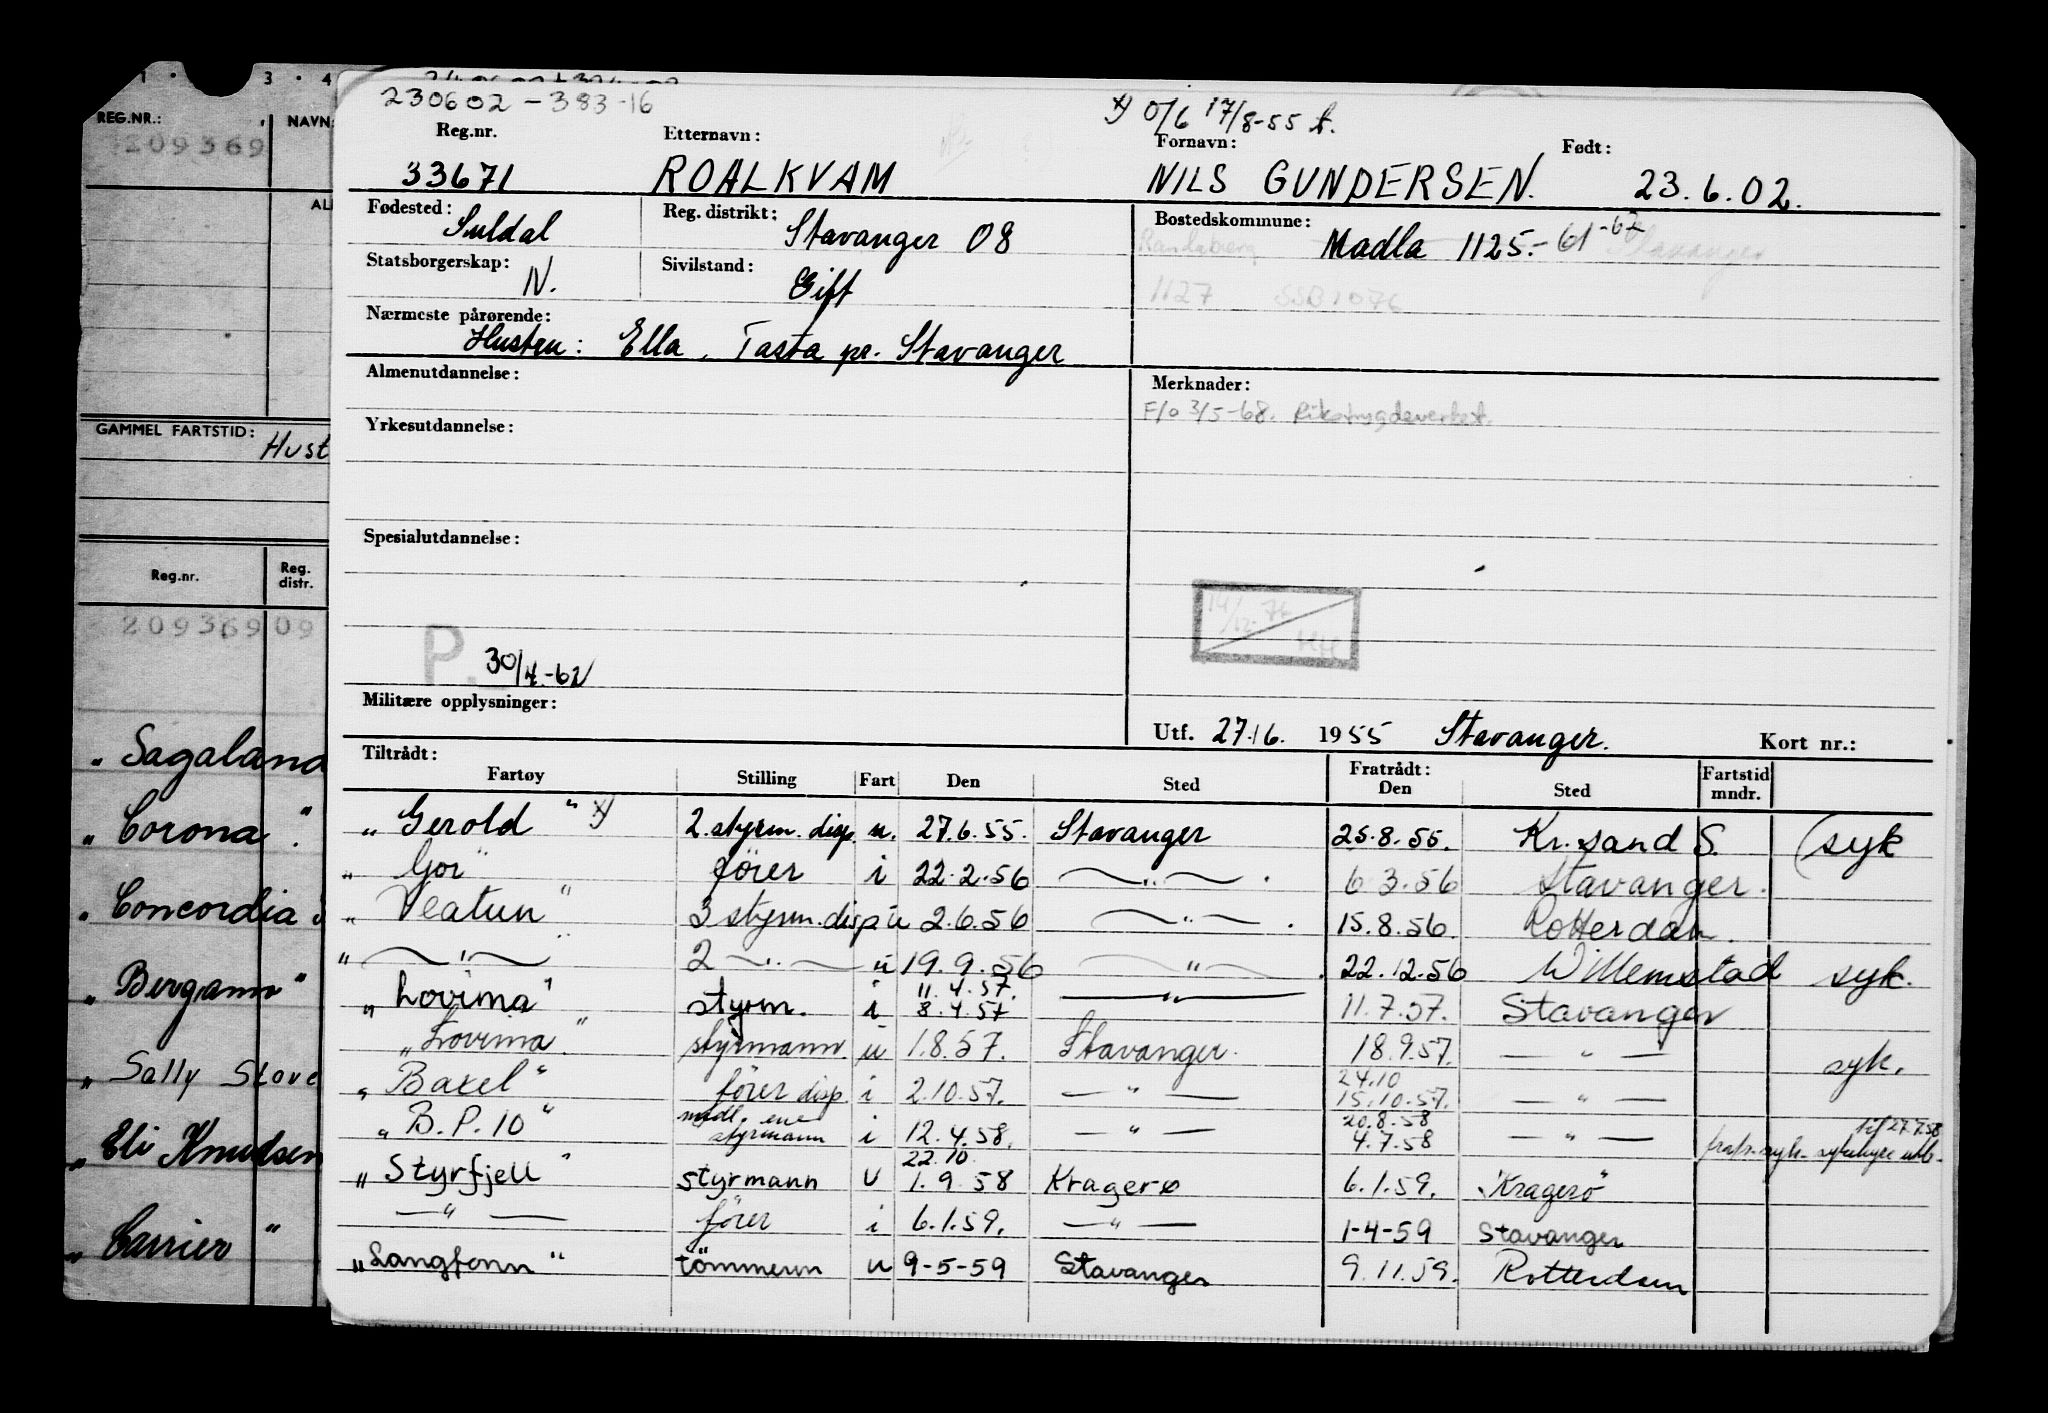 1 · 3 · 4
REG.NR.: NAVN:
209369
GAMMEL FARTSTID:
Hust
Reg.nr. Reg. distr.
209369 09
„ Sagaland
„ Corona "
„ Concordia
„ Bergann "
„ Sally Stove
„ Eli Knudsen
„ Carrier "
230602-383-16
x) O/6 17/8-55
Reg.nr. Etternavn: Fornavn: Født:
33671 ROALKVAM NILS GUNDERSEN. 23.6.02.
Fødested: Suldal Reg. distrikt: Stavanger 08 Bostedskommune: Madla 1125.- 61-62 Stavanger
Randaberg
Statsborgerskap: N. Sivilstand: Gift
1127
Nærmeste pårørende:
Hustru: Ella, Tasta pr. Stavanger
Almenutdannelse: Merknader:
F/o 3/5-68. Rikstrygdeverket.
Yrkesutdannelse:
Spesialutdannelse:
P. 30/4.-62
Militære opplysninger:
Utf. 27/6. 1955 Stavanger. Kort nr.:
Tiltrådt: Fratrådt: Fartstid mndr.
Fartøy Stilling Fart Den Sted Den Sted
„ Gerold " x) 2. styrm. disp. u. 27.6.55. Stavanger 25.8.55. Kr.sand S. (syk
„ Gor " fører i 22.2.56 — " — . 6.3.56 Stavanger.
„ Veatun " 3 styrm. disp u 2.6.56 — " — . 15.8.56. Rotterdam.
„ — " — 2 — " — u 19.9.56 — " — . 22.12.56 Willemstad syk.
11.4.57.
„ Lovima " styrm. i 8.4.57 — " — 11.7.57. Stavanger
„ Lovima " styrmann u 1.8.57. Stavanger. 18.9.57. — " — syk.
24.10
„ Baxel " fører disp. i 2.10.57. — " — 15.10.57. — " —
20.8.58 til 27.7.58
„ B.P. 10 " styrmann i 12.4.58. — " — 4.7.58 — " —
22.10.
„ Styrfjell " styrmann u 1.9.58 Kragerø 6.1.59. Kragerö
— " — fører i 6.1.59. — " — 1-4-59 Stavanger
„ Langfonn " tömmerm u 9-5-59 Stavanger 9.11.59. Rotterdam